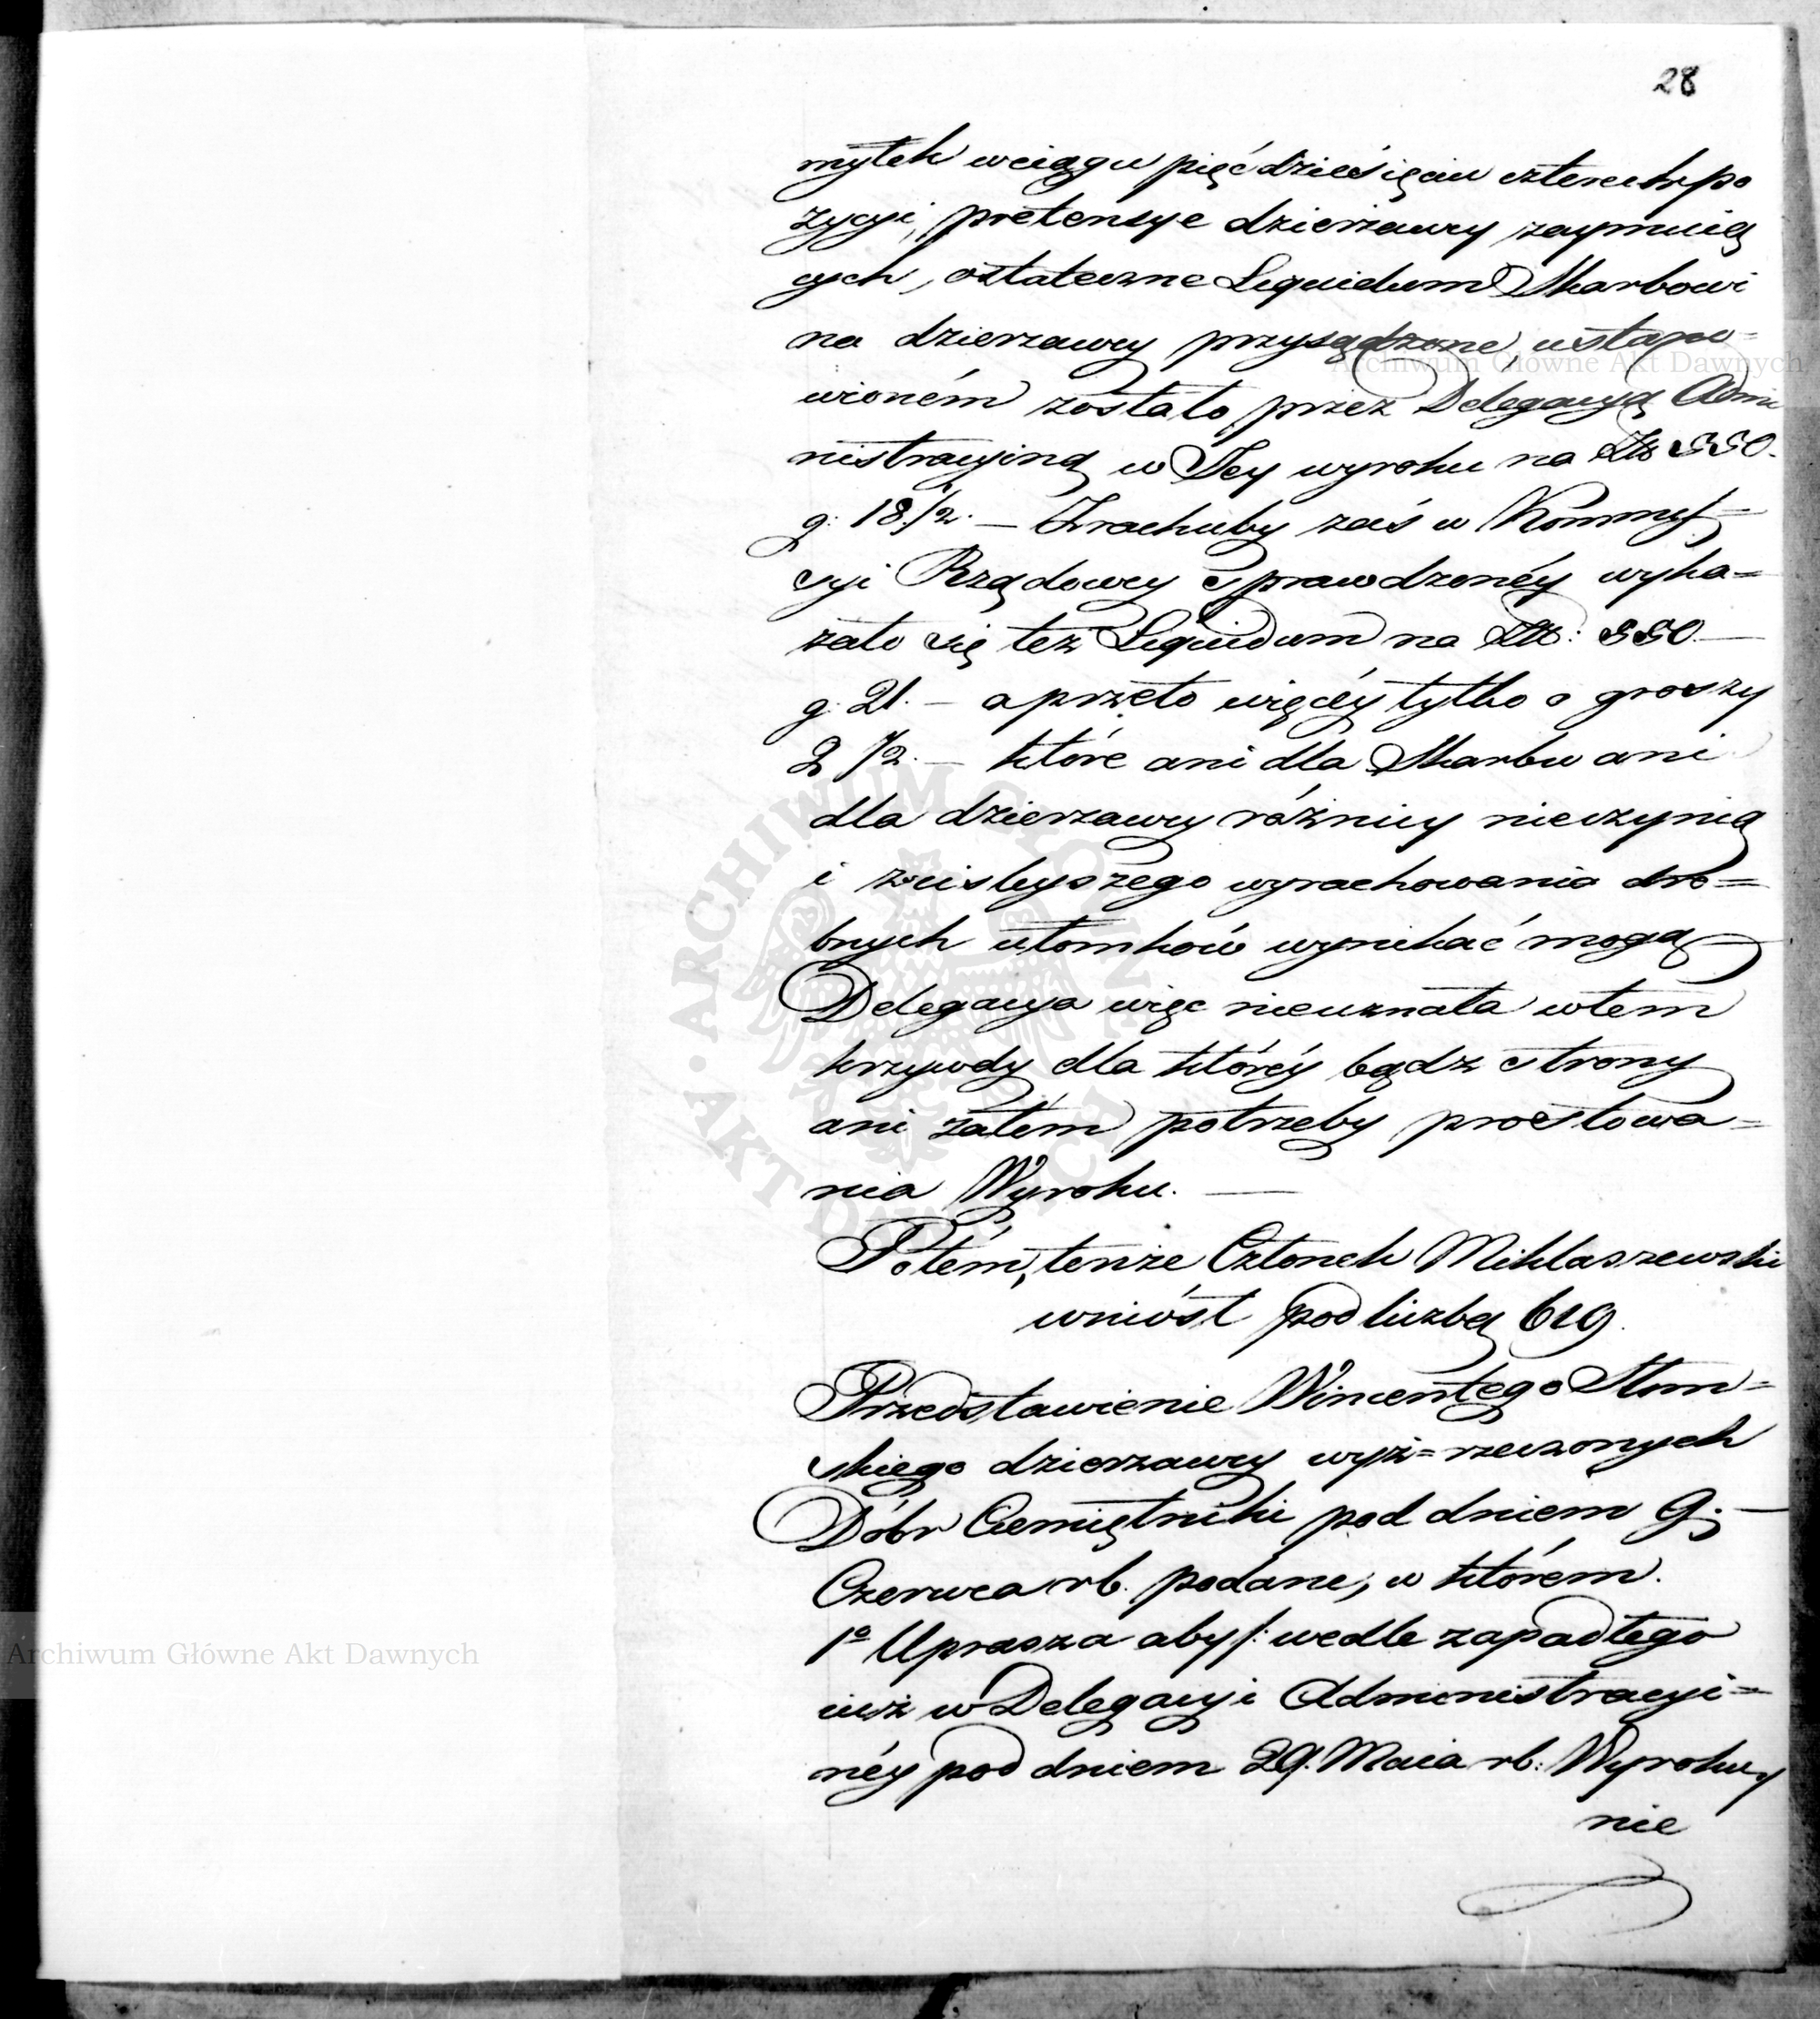 28
myłek wciągu pięćdziesięciu czterech po
zycyi, pretensye dzierżawcy zaymuią
cych, ostateczne Liquidum Skarbowi
na dzierzawcy przysądzone, ustano=
wioném zostało przez Delegacyą Admi
nistracyiną w Jey wyroku na Złt 550.
g: 18 1/2. — Zrachuby zaś w Kommis=
syi Rządowey sprawdzonéy wyka=
zało się też Liquidum na Złt: 550. —
g. 21. — a przeto więcéy tylko o groszy
2 1/2. — które ani dla Skarbu ani
dla dzierzawcy różnicy nieczynią
i zscisleyszego wyrachowania dro=
bnych ułomków wynikać mogą
Delegacya więc nieuznała wtem
krzywdy dla któréy bądz strony
ani zatém potrzeby prostowa=
nia Wyroku. —
Potém, tenże Członek Miklaszewski
wniósł pod liczbą 619.
Przedstawienie Wincentego Słom=
skiego dzierzawcy wyż=rzeczonych
Dóbr Ciemiętniki pod dniem 9. —
Czerwca rb. podane, w którém.
1º Uprasza aby /: wedle zapadłego
iuż w Delegacyi Administracyi=
néy pod dniem 29. Maia rb: Wyroku,
nie
Archiwum Główne Akt Dawnych
Archiwum Główne Akt Dawnych
ARCHIWUM GŁÓWNE AKT DAWNYCH